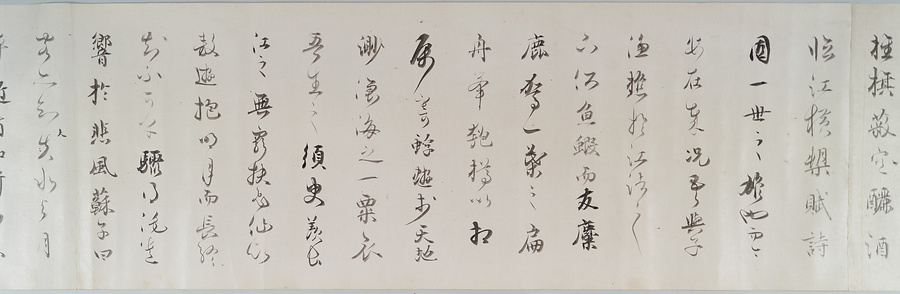 旌旗蔽空釃酒
臨江橫槊賦詩
固一世之雄也而今
安在哉況吾與子
漁樵於江渚之
上侶魚鰕而友麋
鹿駕一葉之扁
舟舉匏樽以相
屬寄蜉蝣於天地
渺滄海之一粟哀
吾生之須臾羨長
江之無窮挾飛仙以
遨遊抱明月而長終
知不可乎驟得託遺
響於悲風蘇子曰
客亦知夫水與月